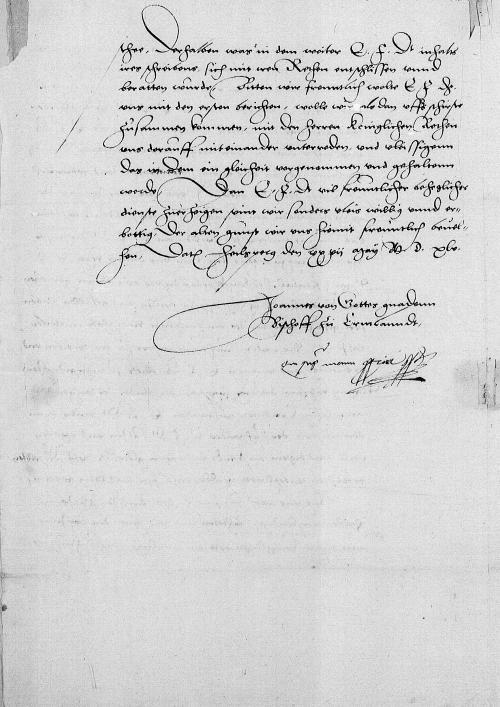 schee. Derhalben was in dem weiter E. F. D. inhalts
ires schreibens, sich mit iren Rethen entschlissen vnnd
beratten wurde, Bitten wir freuntlich wolte E F D.
vns mit den ersten berichten, wolle wir als dan vffs schirste
zusammen kommen, mit den herren Königlichen Rethen
vns darauff miteinander vnterreden, vnd vleissigenn
das in dem ein gleicheit vorgenommen vnd gehaltenn
werde. Dan E. F. D. vil freuntlicher beheglicher
dienste zuerzeigen seint wir sonders vleis willig vnnd er-
bottig. Der alten gunst wir vns hiemit freuntlich beuel-
hen. Dat Heilsperg den may M. D. xlv.
Joannes von Gottes gnadenn
Bischoff zu Ermlanndt.